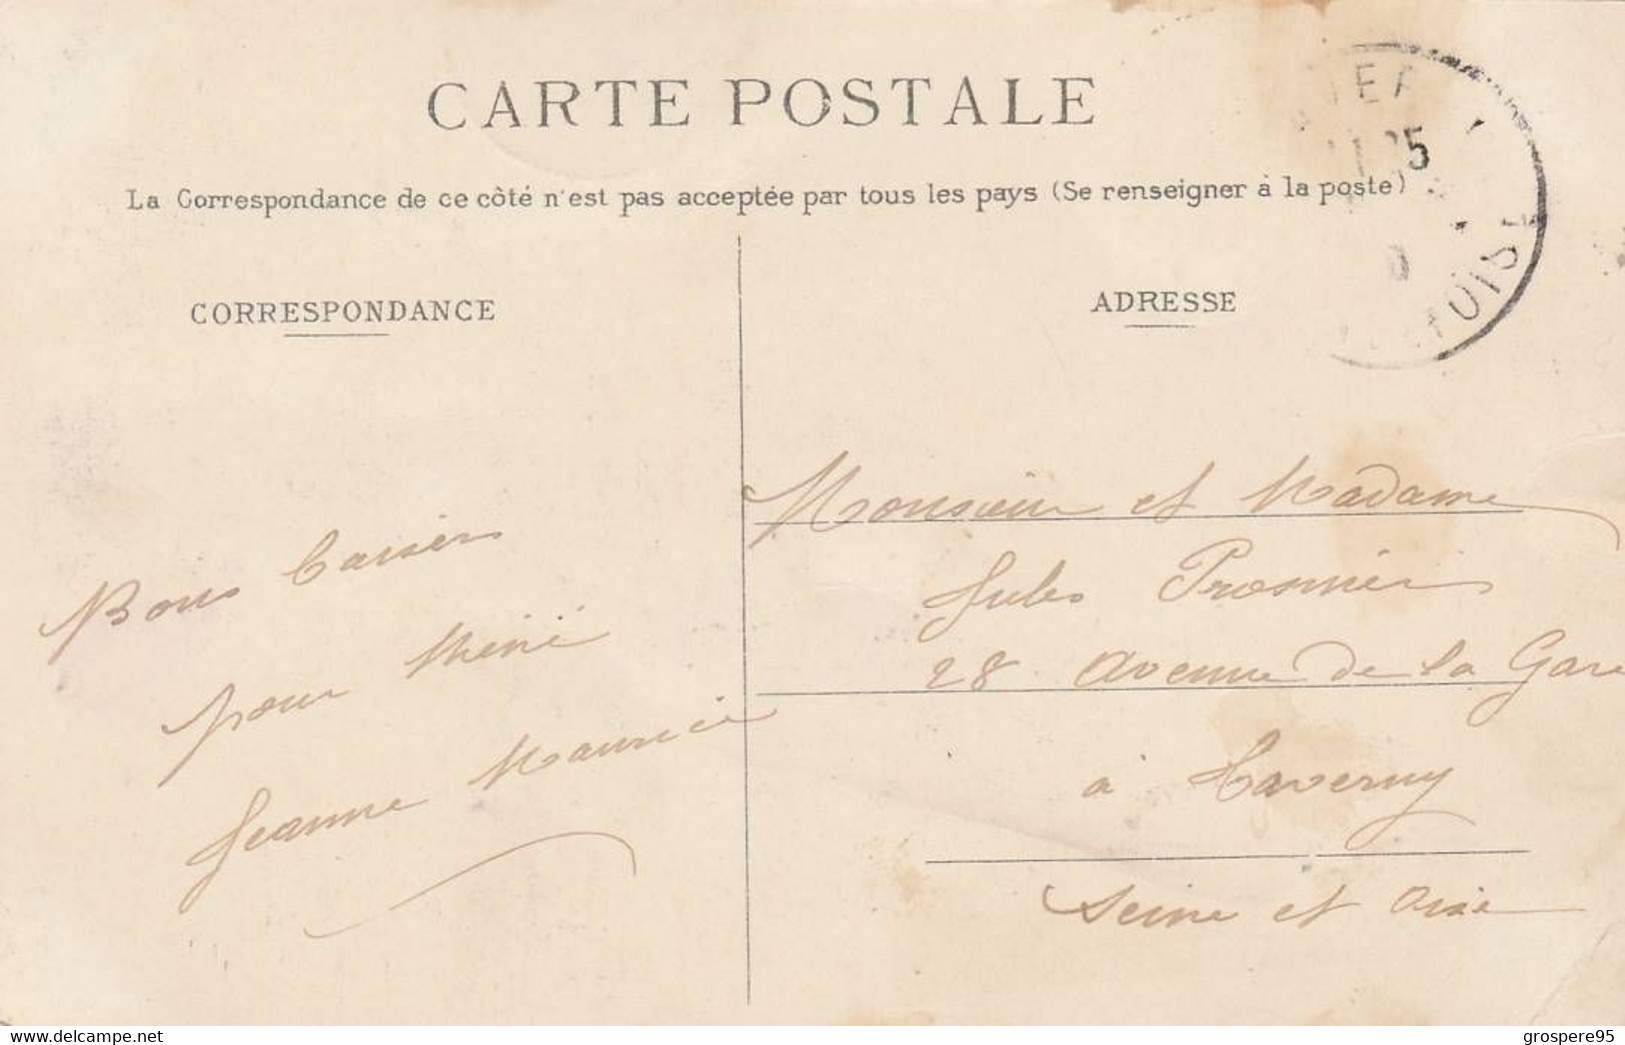 CARTE POSTALE
La Correspondance de ce côté n'est pas acceptée par tous les pays (Se renseigner à la poste)
CORRESPONDANCE
Bons baisers
pour
Jeanne Maurice
ADRESSE
Monsieur et Madame
Jules
28 Avenue de la Gare
à Taverny
Seine et Oise
OISE
www.delcampe.net
grospere95